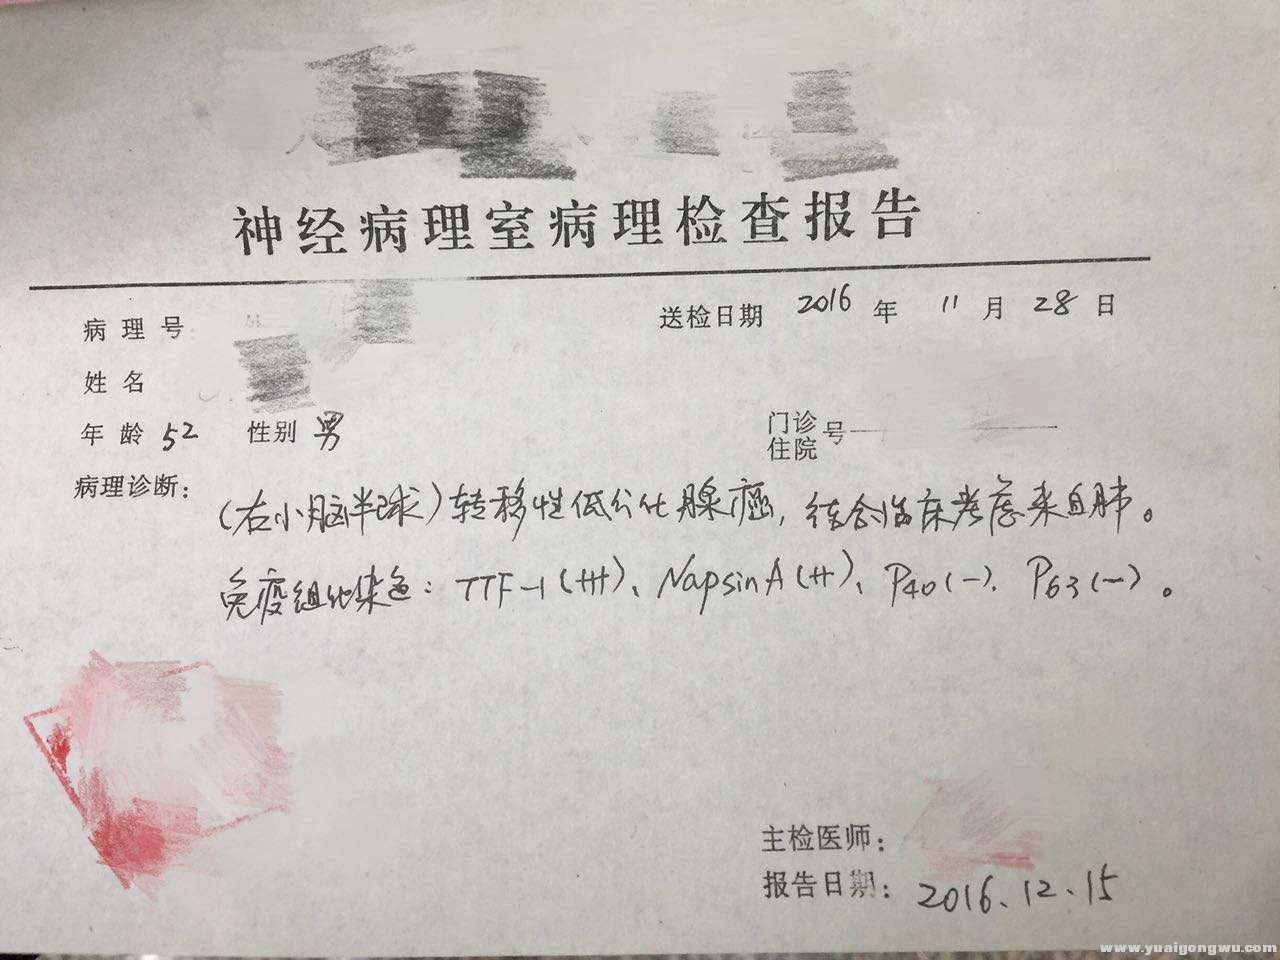 神经病理室病理检查报告
病理号 送检日期 2016 年 11 月 28 日
姓名
年龄 52 性别 男 门诊住院号
病理诊断:
(右小脑半球)转移性低分化腺癌，结合临床考虑来自肺。
免疫组化染色: TTF-1(+++)、NapsinA(++)、P40(-)、P63(-)。
主检医师:
报告日期: 2016.12.15
www.yuaigongwu.com